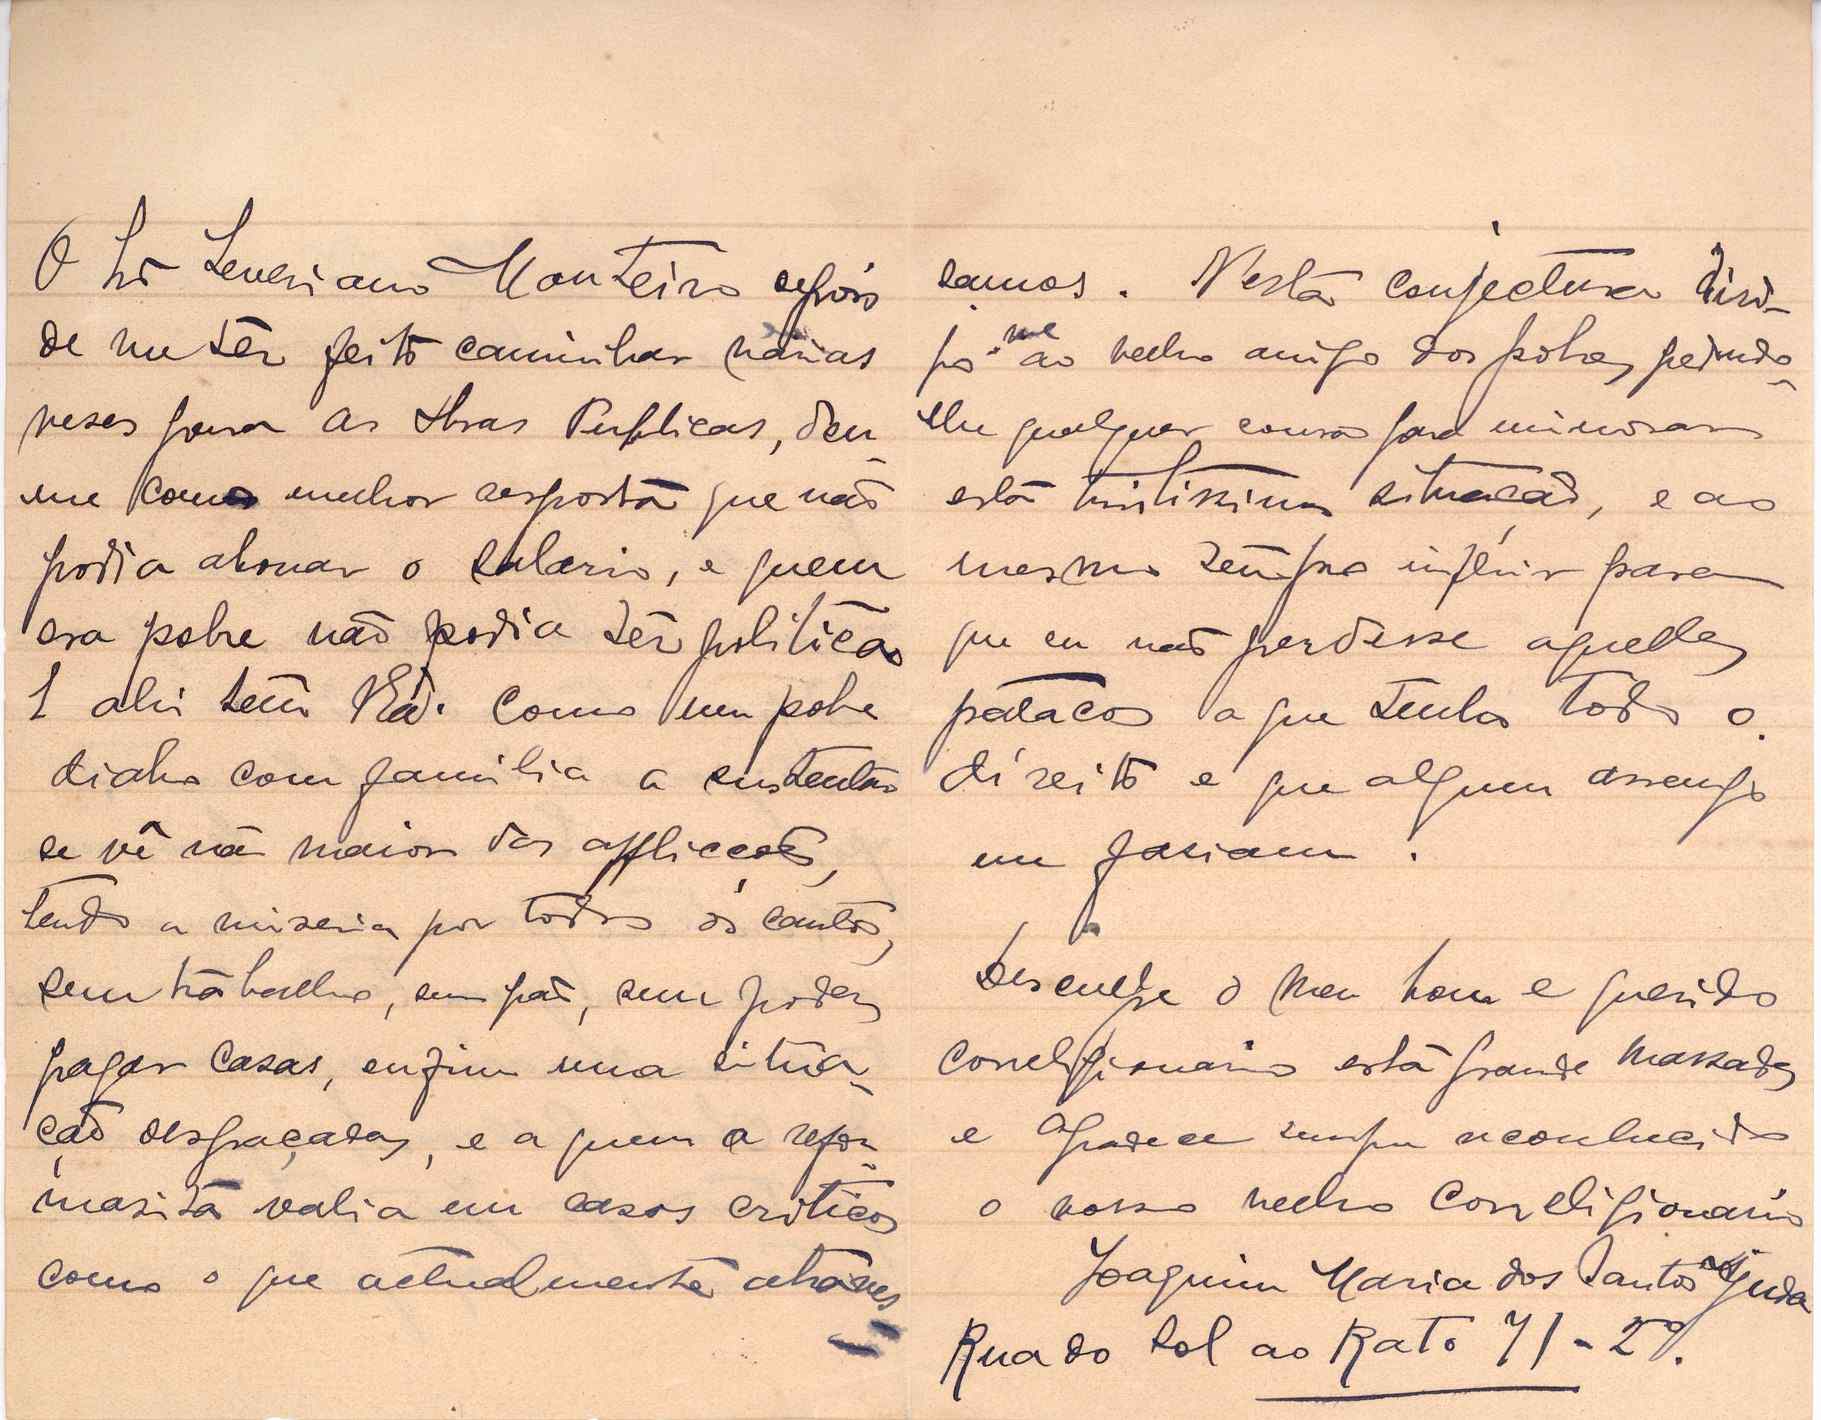 O Snr Severiano Monteiro depois
de me têr feito caminhar varias
vezes para as Obras Publicas, deu-
me como melhor resposta que não
podia abonar o salario, e quem
era pobre não podia têr politica
E ahi tem V. Exª. como um pobre
diabo com familia a sustentar
se vê na maior das afflicções,
tendo a miseria por todos os cantos,
sem trabalho, sem pão, sem poder
pagar casas, enfim uma situa-
ção desgraçada, e a quem a
valia em casos criticos
como o que actualmente atraves
samos. Nesta conjectura diri-
jo-me ao velho amigo dos pobres, pedindo-
lhe qualquer cousa para minorar
esta tristissima situacão, e ao
mesmo tempo influir para
que eu não perdesse aquelles
patacos a que tenho todo o
direito e que algum arranjo
me fasiam.
Desculpe o meu bom e querido
correligionario esta grande massada
e agradece sempre reconhecido
o vosso velho correligionario
Joaquim Maria dos Santos Ajuda
Rua do Sol ao Rato 71-2º.